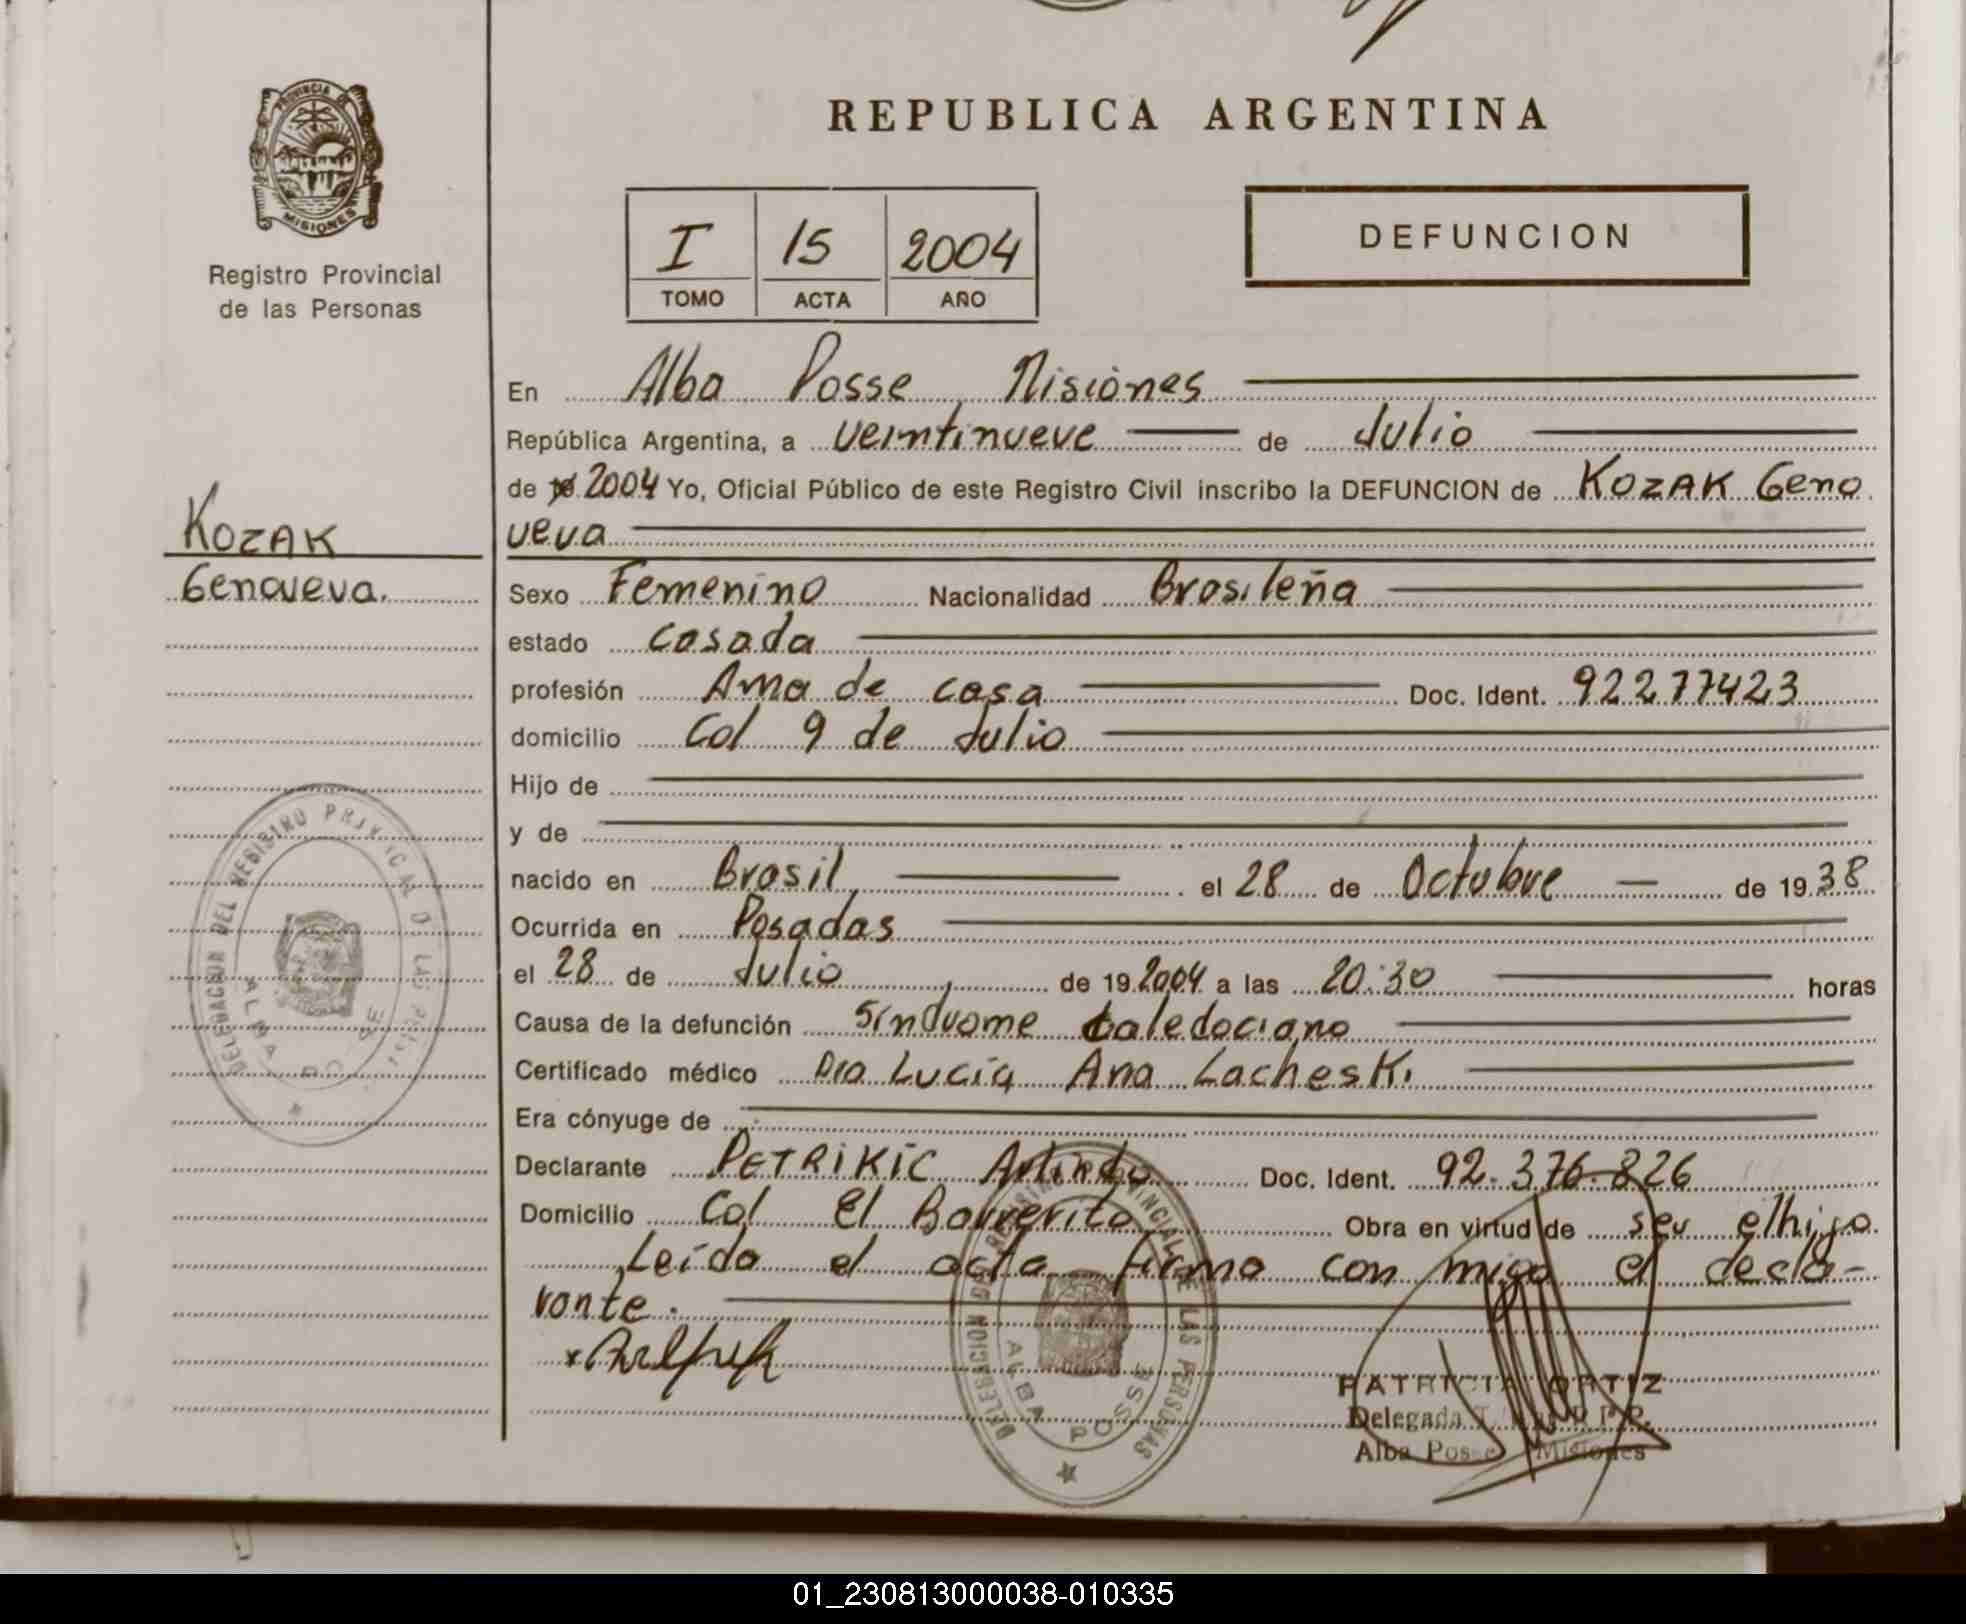 PROVINCIA DE
MISIONES
Registro Provincial
de las Personas
REPUBLICA ARGENTINA
I 15 2004
TOMO ACTA AÑO
DEFUNCION
En Alba Posse Misiones
República Argentina, a veintinueve de Julio
de 2004 Yo, Oficial Público de este Registro Civil inscribo la DEFUNCION de KOZAK Geno
veva
KOZAK
Genoveva.
Sexo Femenino Nacionalidad Brasileña
estado casada
profesión Ama de casa Doc. Ident. 92277423
domicilio Col 9 de Julio
Hijo de
y de
nacido en Brasil el 28 de Octubre de 1938
Ocurrida en Posadas
el 28 de Julio de 19 2004 a las 20:30 horas
Causa de la defunción Síndrome
Certificado médico Dra Lucía Ana Lacheski
Era cónyuge de
Declarante PETRIKIC Arlindo Doc. Ident. 92.376.826
Domicilio Col El Barrerito Obra en virtud de ser el hijo.
Leída el acta firma con migo el decla-
rante.
DELEGACION DEL REGISTRO PROVINCIAL DE LAS PERSONAS
ALBA POSSE
PATRICIA ORTIZ
Delegada R.P.P.
Alba Posse Misiones
01_230813000038-010335